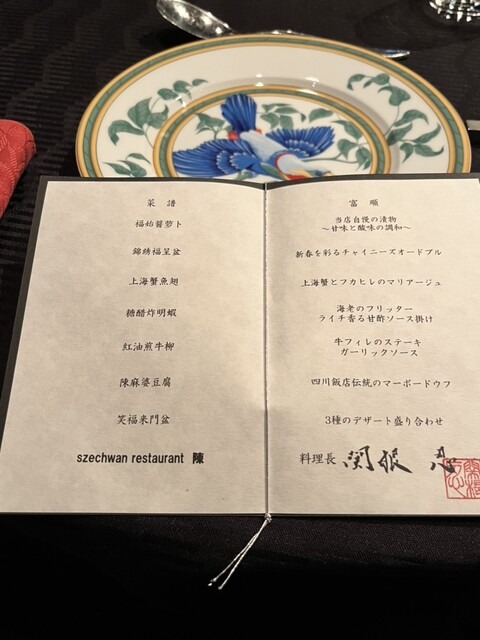 菜譜
福始醤萝卜
錦綉福星盆
上海蟹魚翅
糖醋炸明蝦
紅油煎牛柳
陳麻婆豆腐
笑福来門盆
szechwan restaurant 陳
富順
当店自慢の漬物
~甘味と酸味の調和~
新春を彩るチャイニーズオードブル
上海蟹とフカヒレのマリアージュ
海老のフリッター
ライチ香る甘酢ソース掛け
牛フィレのステーキ
ガーリックソース
四川飯店伝統のマーボードウフ
3種のデザート盛り合わせ
料理長 関根